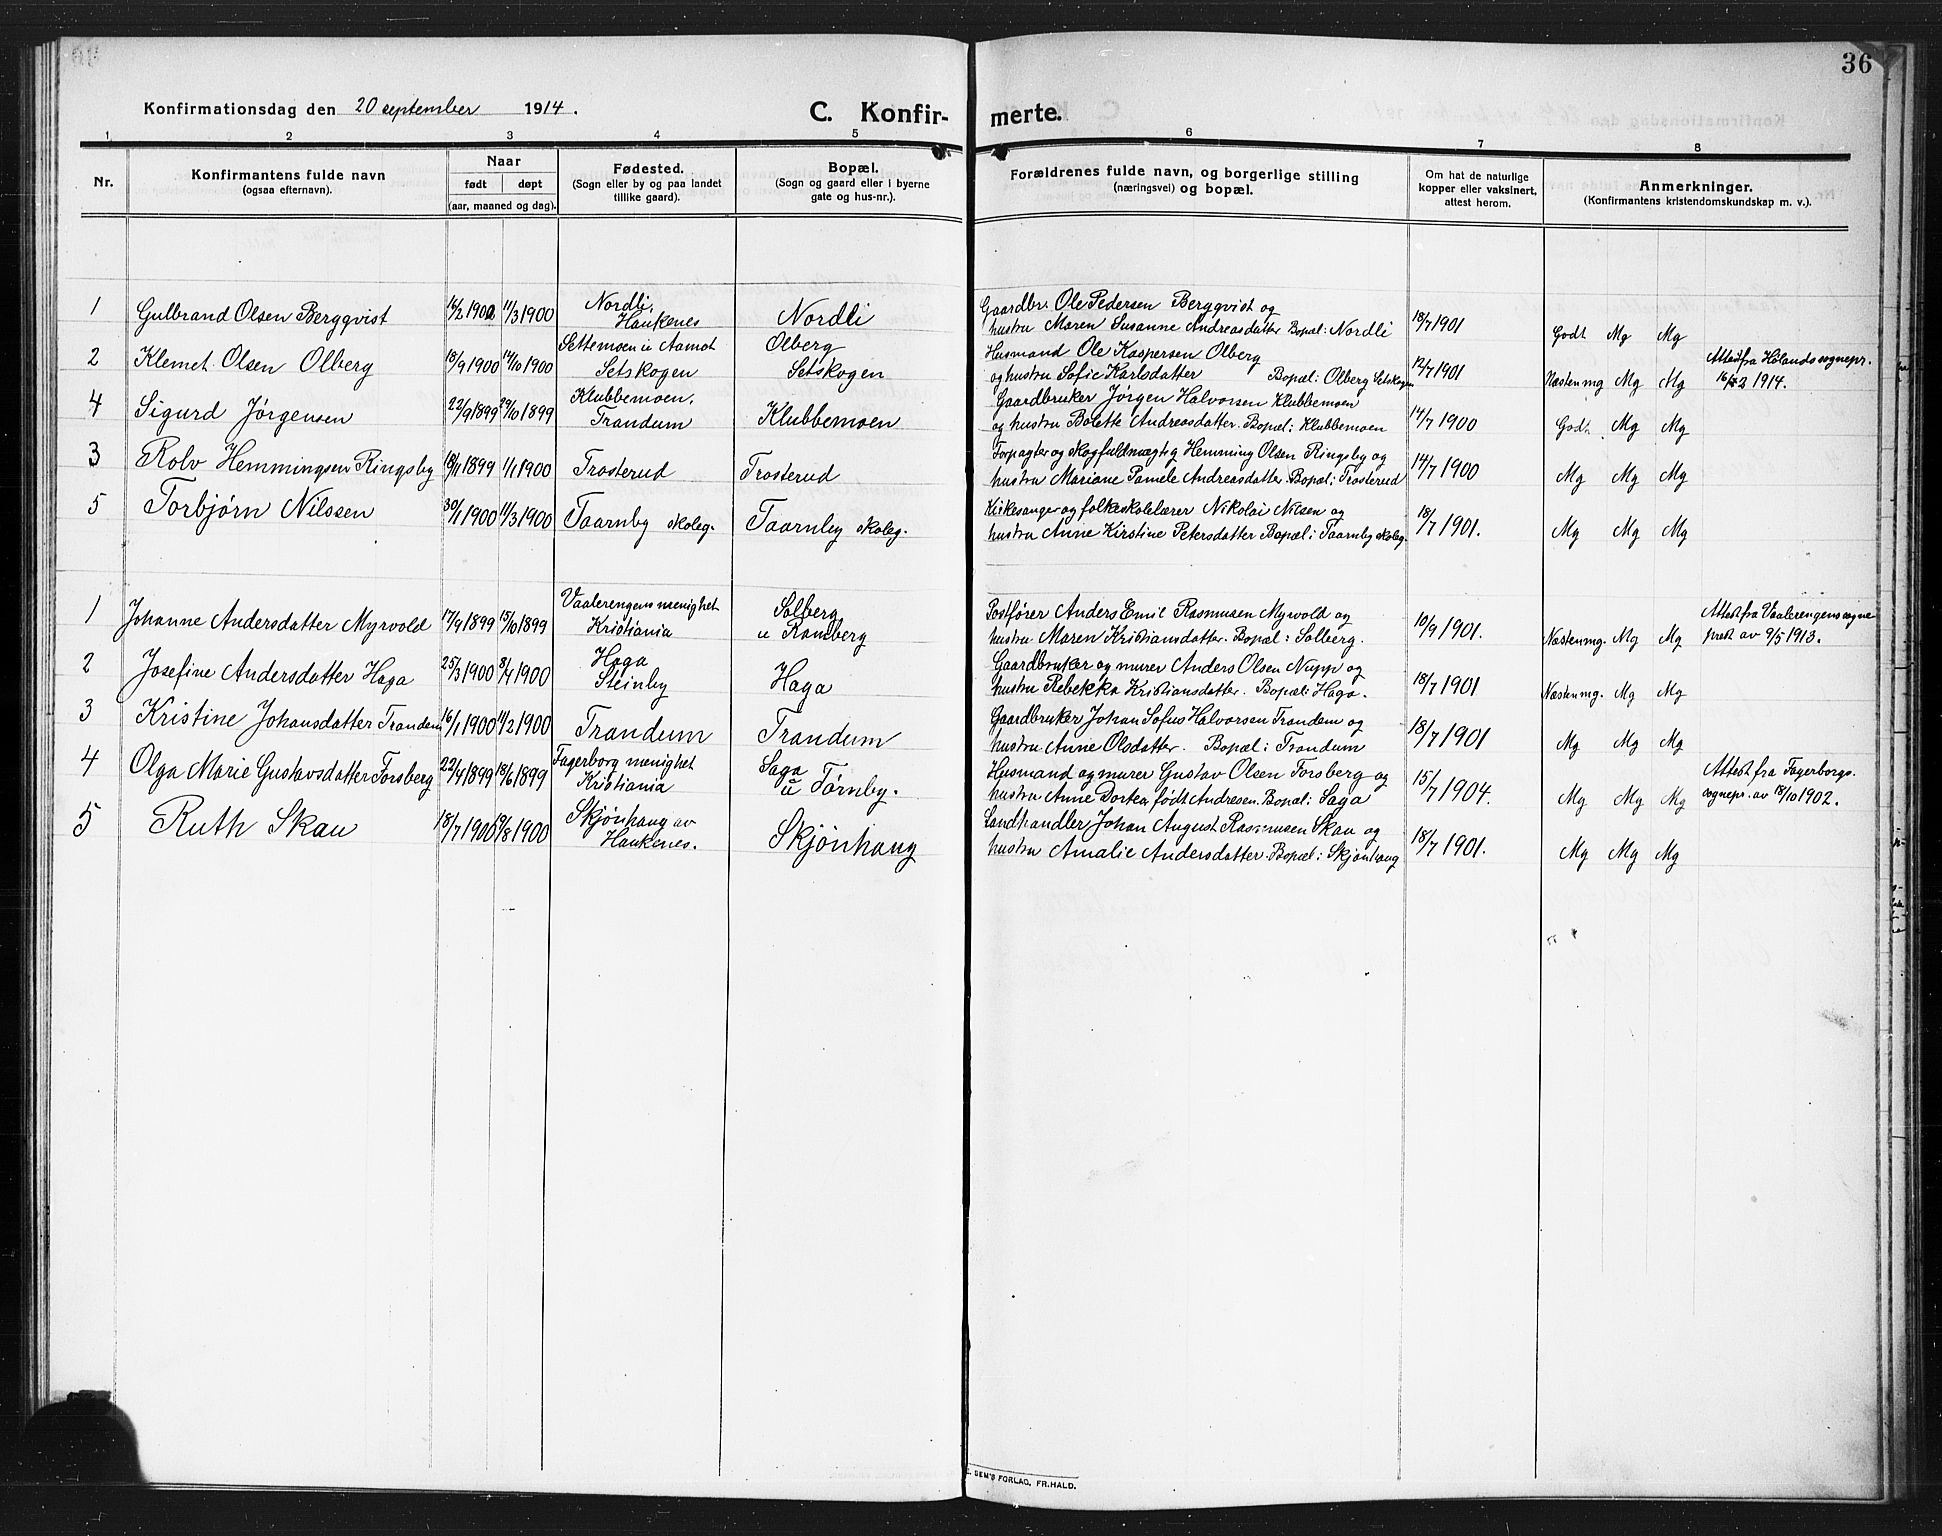 36
Konfirmationsdag den 20 september 1914.
C. Konfir- merte.
1 2 3 4 5 6 7 8
Nr.
Konfirmantens fulde navn
(ogsaa efternavn).
Naar
født døpt
(aar, maaned og dag).
Fødested.
(Sogn eller by og paa landet
tillike gaard).
Bopæl.
(Sogn og gaard eller i byerne
gate og hus-nr.).
Forældrenes fulde navn, og borgerlige stilling
(næringsvei) og bopæl.
Om hat de naturlige
kopper eller vaksinert,
attest herom.
Anmerkninger.
(Konfirmantens kristendomskundskap m. v.).
1 Gulbrand Olsen Bergqvist 16/2 1900 11/3 1900 Nordli, Haukenes Nordli
Gaardbr. Ole Pedersen Bergqvist og
hustru Maren Susanne Andreasdatter Bopæl: Nordli 18/7 1901 Godt Mg Mg
2 Klemet Olsen Olberg 18/9 1900 14/10 1900 Settemoen u Aamot Setskogen Olberg Setskogen
Husmand Ole Kaspersen Olberg
og hustru Sofie Karlsdatter Bopæl: Olberg Setskogen 12/7 1901 Næsten mg Mg Mg Attest fra Hølands sognepr.
1914.
4 Sigurd Jørgensen 22/9 1899 29/10 1899 Klubbemoen. Trandum Klubbemoen
Gaardbruker Jørgen Halvorsen Klubbemoen
og hustru Bolette Andreasdatter. Bopæl: Klubbemoen 14/7 1900 Godt Mg Mg
3 Rolv Hemmingsen Ringsby 18/11 1899 1/1 1900 Trosterud Trosterud
Forpagter og skogfuldmægtig Hemming Olsen Ringsby og
hustru Mariane Pamele Andreasdatter. Bopæl: Trosterud 14/7 1900 Mg Mg Mg
5 Torbjørn Nilssen 30/1 1900 11/3 1900 Taarnby skoleg. Taarnby skoleg.
Kirkesanger og folkeskolelærer Nikolai Nilsen og
hustru Anne Kirstine Petersdatter Bopæl: Taarnby skoleg. 18/7 1901. Mg Mg Mg
1 Johanne Andersdatter Myrvold 17/9 1899 15/10 1899 Vaalerengens menighet Kristiania Solberg u Ramberg
Postfører Anders Emil Rasmusen Myrvold og
hustru Maren Kristiansdatter. Bopæl: Solberg. 10/9 1901. Næsten mg. Mg Mg Attest fra Vaalerengens sogne
prest av 9/5 1913.
2 Josefine Andersdatter Haga 25/3 1900 8/4 1900 Haga Steinby Haga
Gaardbruker og murer Anders Olsen Nupp og
hustru Rebekka Kristiansdatter. Bopæl: Haga. 18/7 1901 Næsten mg. Mg Mg
3 Kristine Johansdatter Trandem 16/1 1900 11/2 1900 Trandum Trandum
Gaardbruker Johan Sofus Halvorsen Trandem og
hustru Anne Olsdatter. Bopæl: Trandum 18/7 1901 Mg Mg Mg
4 Olga Marie Gustavsdatter Forsberg 22/4 1899 18/6 1899 Fagerborg menighet Kristiania Saga u Tørnby.
Husmand og murer Gustav Olsen Forsberg og
hustru Anne Dortea født Andresen. Bopæl: Saga 15/7 1904. Mg Mg Mg Attest fra Fagerborgs.
sognepr. av 18/10 1902.
5 Ruth Skau 18/7 1900 19/8 1900 Skjønhaug av Haukenes. Skjønhaug
Landhandler Johan August Rasmusen Skau og
hustru Amalie Andersdatter. Bopæl: Skjønhaug 18/7 1901. Mg Mg Mg
SEM'S FORLAG, FR.HALD.